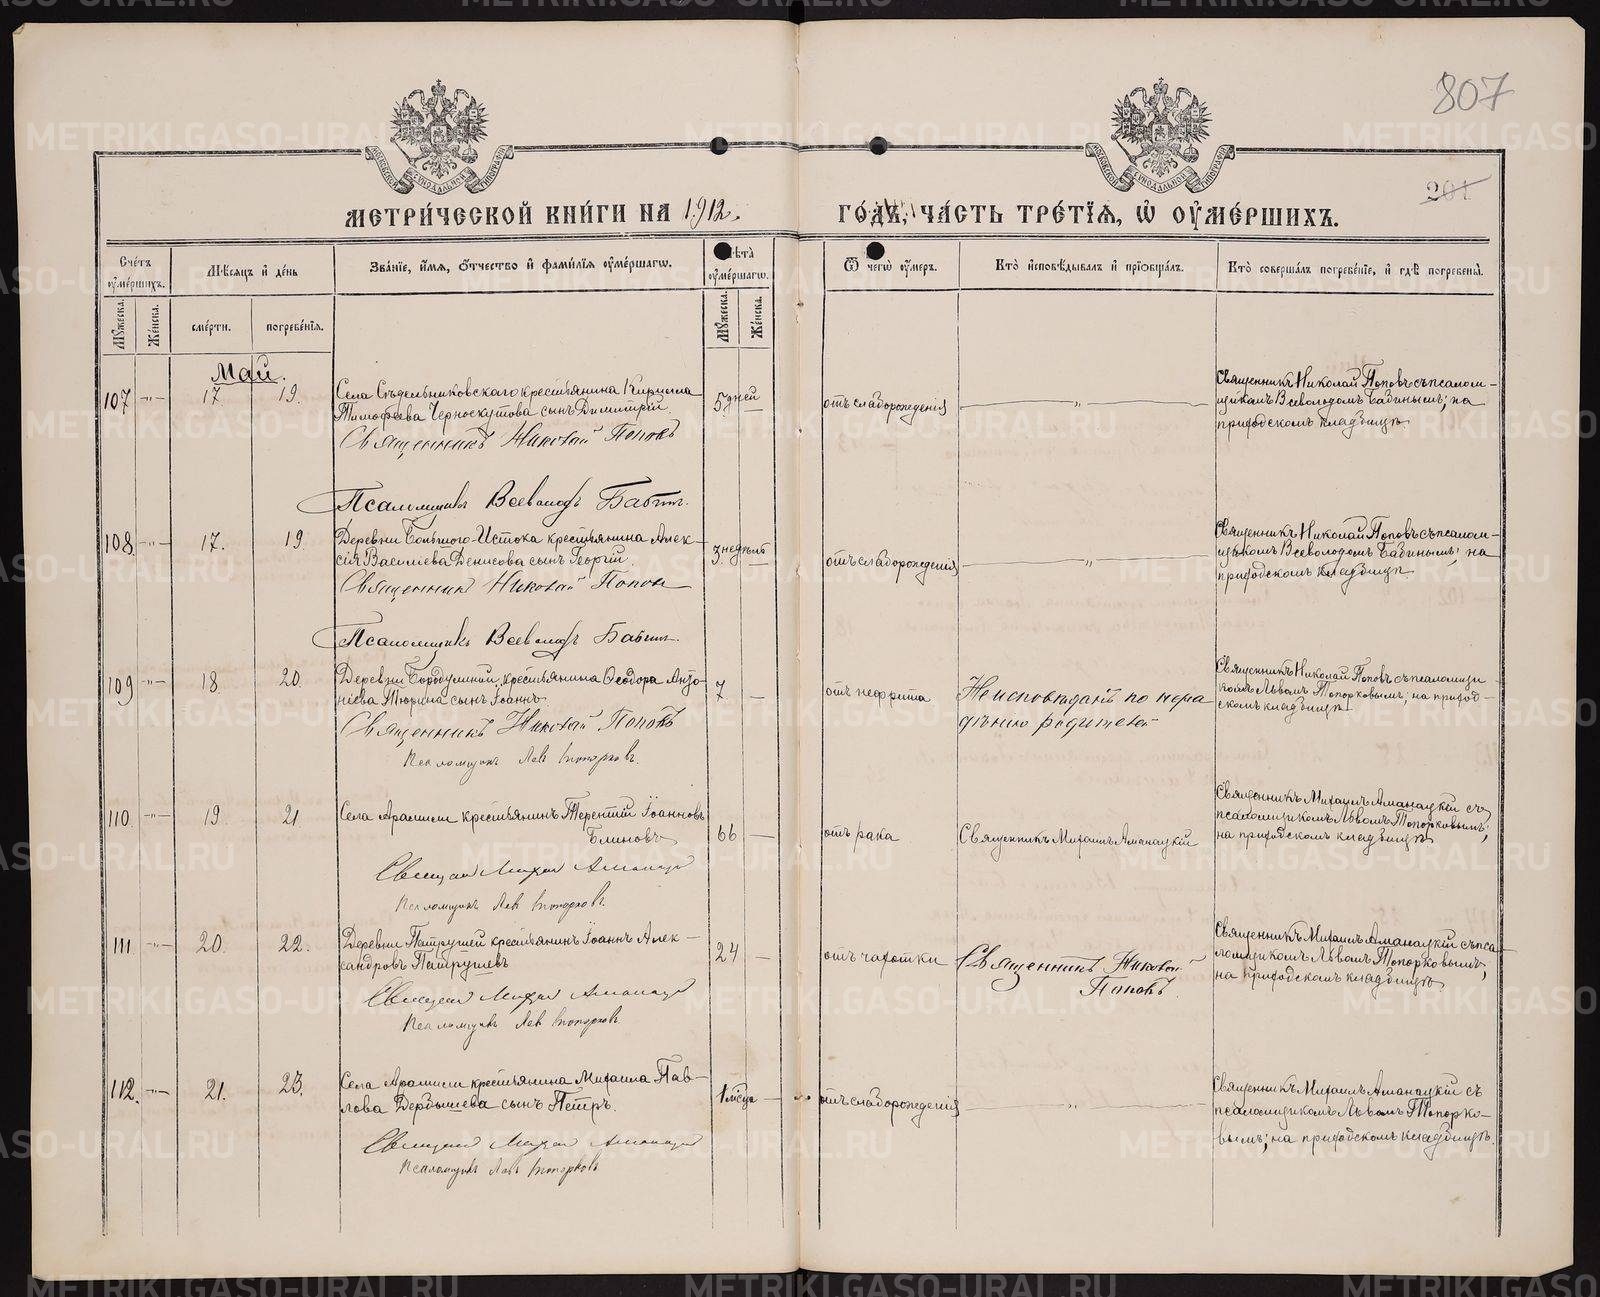 807
201
МЕТРИЧЕСКОЙ КНИГИ НА 1912. ГОДЪ, ЧАСТЬ ТРЕТІЯ, Ѿ ОУМЕРШИХЪ.
Счетъ оумершихъ.
Мѣсяцъ и день
Званіе, имя, отчество и фамилія оумершагѡ.
Лѣта оумершагѡ.
Ѿ чегѡ оумеръ.
Кто исповѣдывалъ и пріобщалъ.
Кто совершалъ погребеніе, и гдѣ погребены.
Мужеска.
Женска.
смерти.
погребенія.
Мужеска.
Женска.
Май.
107 -"- 17 19.
Села Сѣдельниковскаго крестьянина Кирилла
Тимофеева Черноскутова сынъ Димитрій
Священникъ Николай Поповъ
Псаломщикъ Всеволодъ Бабинъ.
5 дней —
отъ слаборожденія
— " —
Священникъ Николай Поповъ съ псалом-
щикомъ Всеволодомъ Бабинымъ; на
приходскомъ кладбищѣ.
108. -"- 17. 19
Деревни Большого-Истока крестьянина Алек-
сія Васильева Денисова сынъ Георгій.
Священникъ Николай Поповъ
Псаломщикъ Всеволодъ Бабинъ.
3 недѣль —
отъ слаборожденія
— " —
Священникъ Николай Поповъ съ псалом-
щикомъ Всеволодомъ Бабинымъ; на
приходскомъ кладбищѣ.
109 -"- 18. 20.
Деревни Бородулиной, крестьянина Ѳеодора Анто-
ніева Тюрина сынъ Іоаннъ
Священникъ Николай Поповъ
Псаломщикъ Левъ Топорковъ.
7 —
отъ нефрита
Неисповѣданъ по нера
дѣнію родителей
Священникъ Николай Поповъ съ псаломщи
комъ Львомъ Топорковымъ; на приход-
скомъ кладбищѣ
110. -"- 19. 21
Села Арамили крестьянинъ Терентій Іоанновъ
Блиновъ
Священ Михаил Аманацк
Псаломщикъ Левъ Топорковъ.
66 —
отъ рака
Священникъ Михаилъ Аманацкій
Священникъ Михаилъ Аманацкій съ
псаломщикомъ Львомъ Топорковымъ;
на приходскомъ кладбищѣ
111 -"- 20. 22.
Деревни Патрушей крестьянинъ Іоаннъ Алек-
сандровъ Патрушевъ
Священ Михаил Аманацк
Псаломщикъ Левъ Топорковъ.
24 —
отъ чахотки
Священникъ Николай
Поповъ
Священникъ Михаилъ Аманацкій съ пса-
ломщикомъ Львомъ Топорковымъ;
на приходскомъ кладбищѣ
112. -"- 21. 23.
Села Арамили крестьянина Михаила Пав-
лова Дербышева сынъ Петръ.
Священ Михаил Аманацк
Псаломщикъ Левъ Топорковъ
1 мѣсяц —
отъ слаборожденія
— " —
Священникъ Михаилъ Аманацкій съ
псаломщикомъ Львомъ Топорко-
вымъ; на приходскомъ кладбищѣ.
METRIKI.GASO-URAL.RU